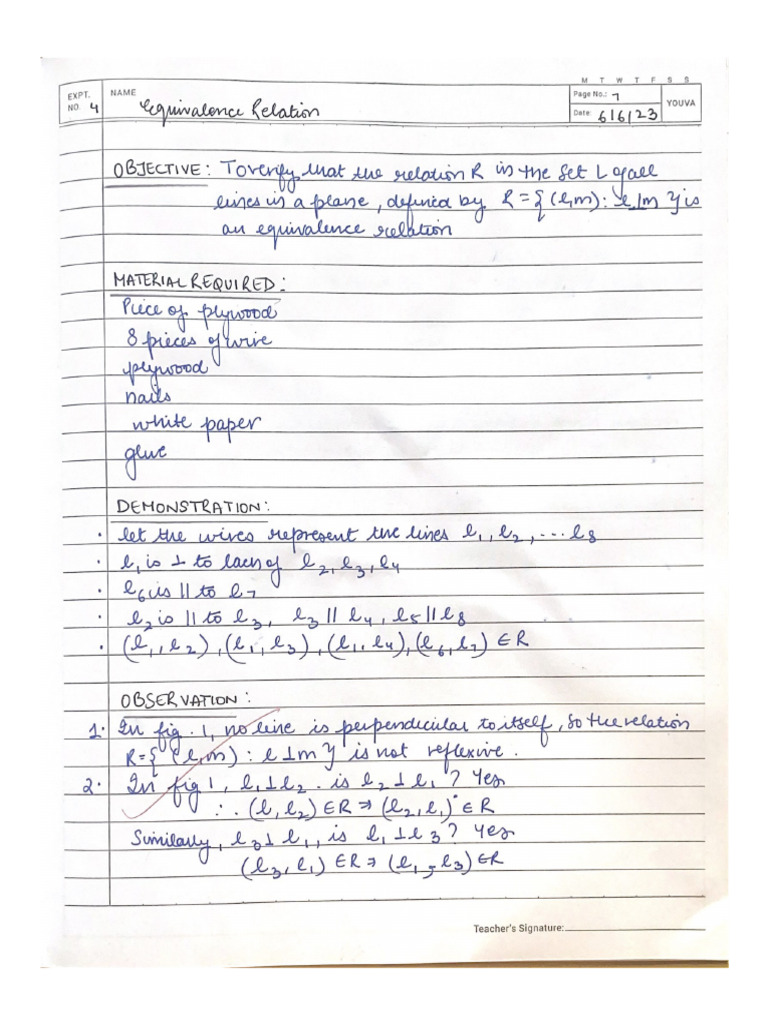 M T W T F S S
EXPT. NO. 4 NAME Equivalence Relation Page No.: 7 YOUVA
Date: 6/6/23
OBJECTIVE: To verify that the relation R in the Set L of all
lines in a plane, defined by R = { (l,m) : l ⊥ m } is
an equivalence relation
MATERIAL REQUIRED:
Piece of plywood
8 pieces of wire
plywood
nails
white paper
glue
DEMONSTRATION:
• let the wires represent the lines l₁, l₂, ... l₈
• l₁ is ⊥ to each of l₂, l₃, l₄
• l₆ is || to l₇
• l₂ is || to l₃, l₃ || l₄, l₅ || l₈
• (l₁, l₂), (l₁, l₃), (l₁, l₄), (l₆, l₇) ∈ R
OBSERVATION:
1. In fig. 1, no line is perpendicular to itself, so the relation
R = { (l,m) : l ⊥ m } is not reflexive.
2. In fig 1, l₁ ⊥ l₂. is l₂ ⊥ l₁? Yes
∴ (l₁, l₂) ∈ R ⇒ (l₂, l₁) ∈ R
Similarly, l₃ ⊥ l₁, is l₁ ⊥ l₃? Yes
(l₃, l₁) ∈ R ⇒ (l₁, l₃) ∈ R
Teacher's Signature: